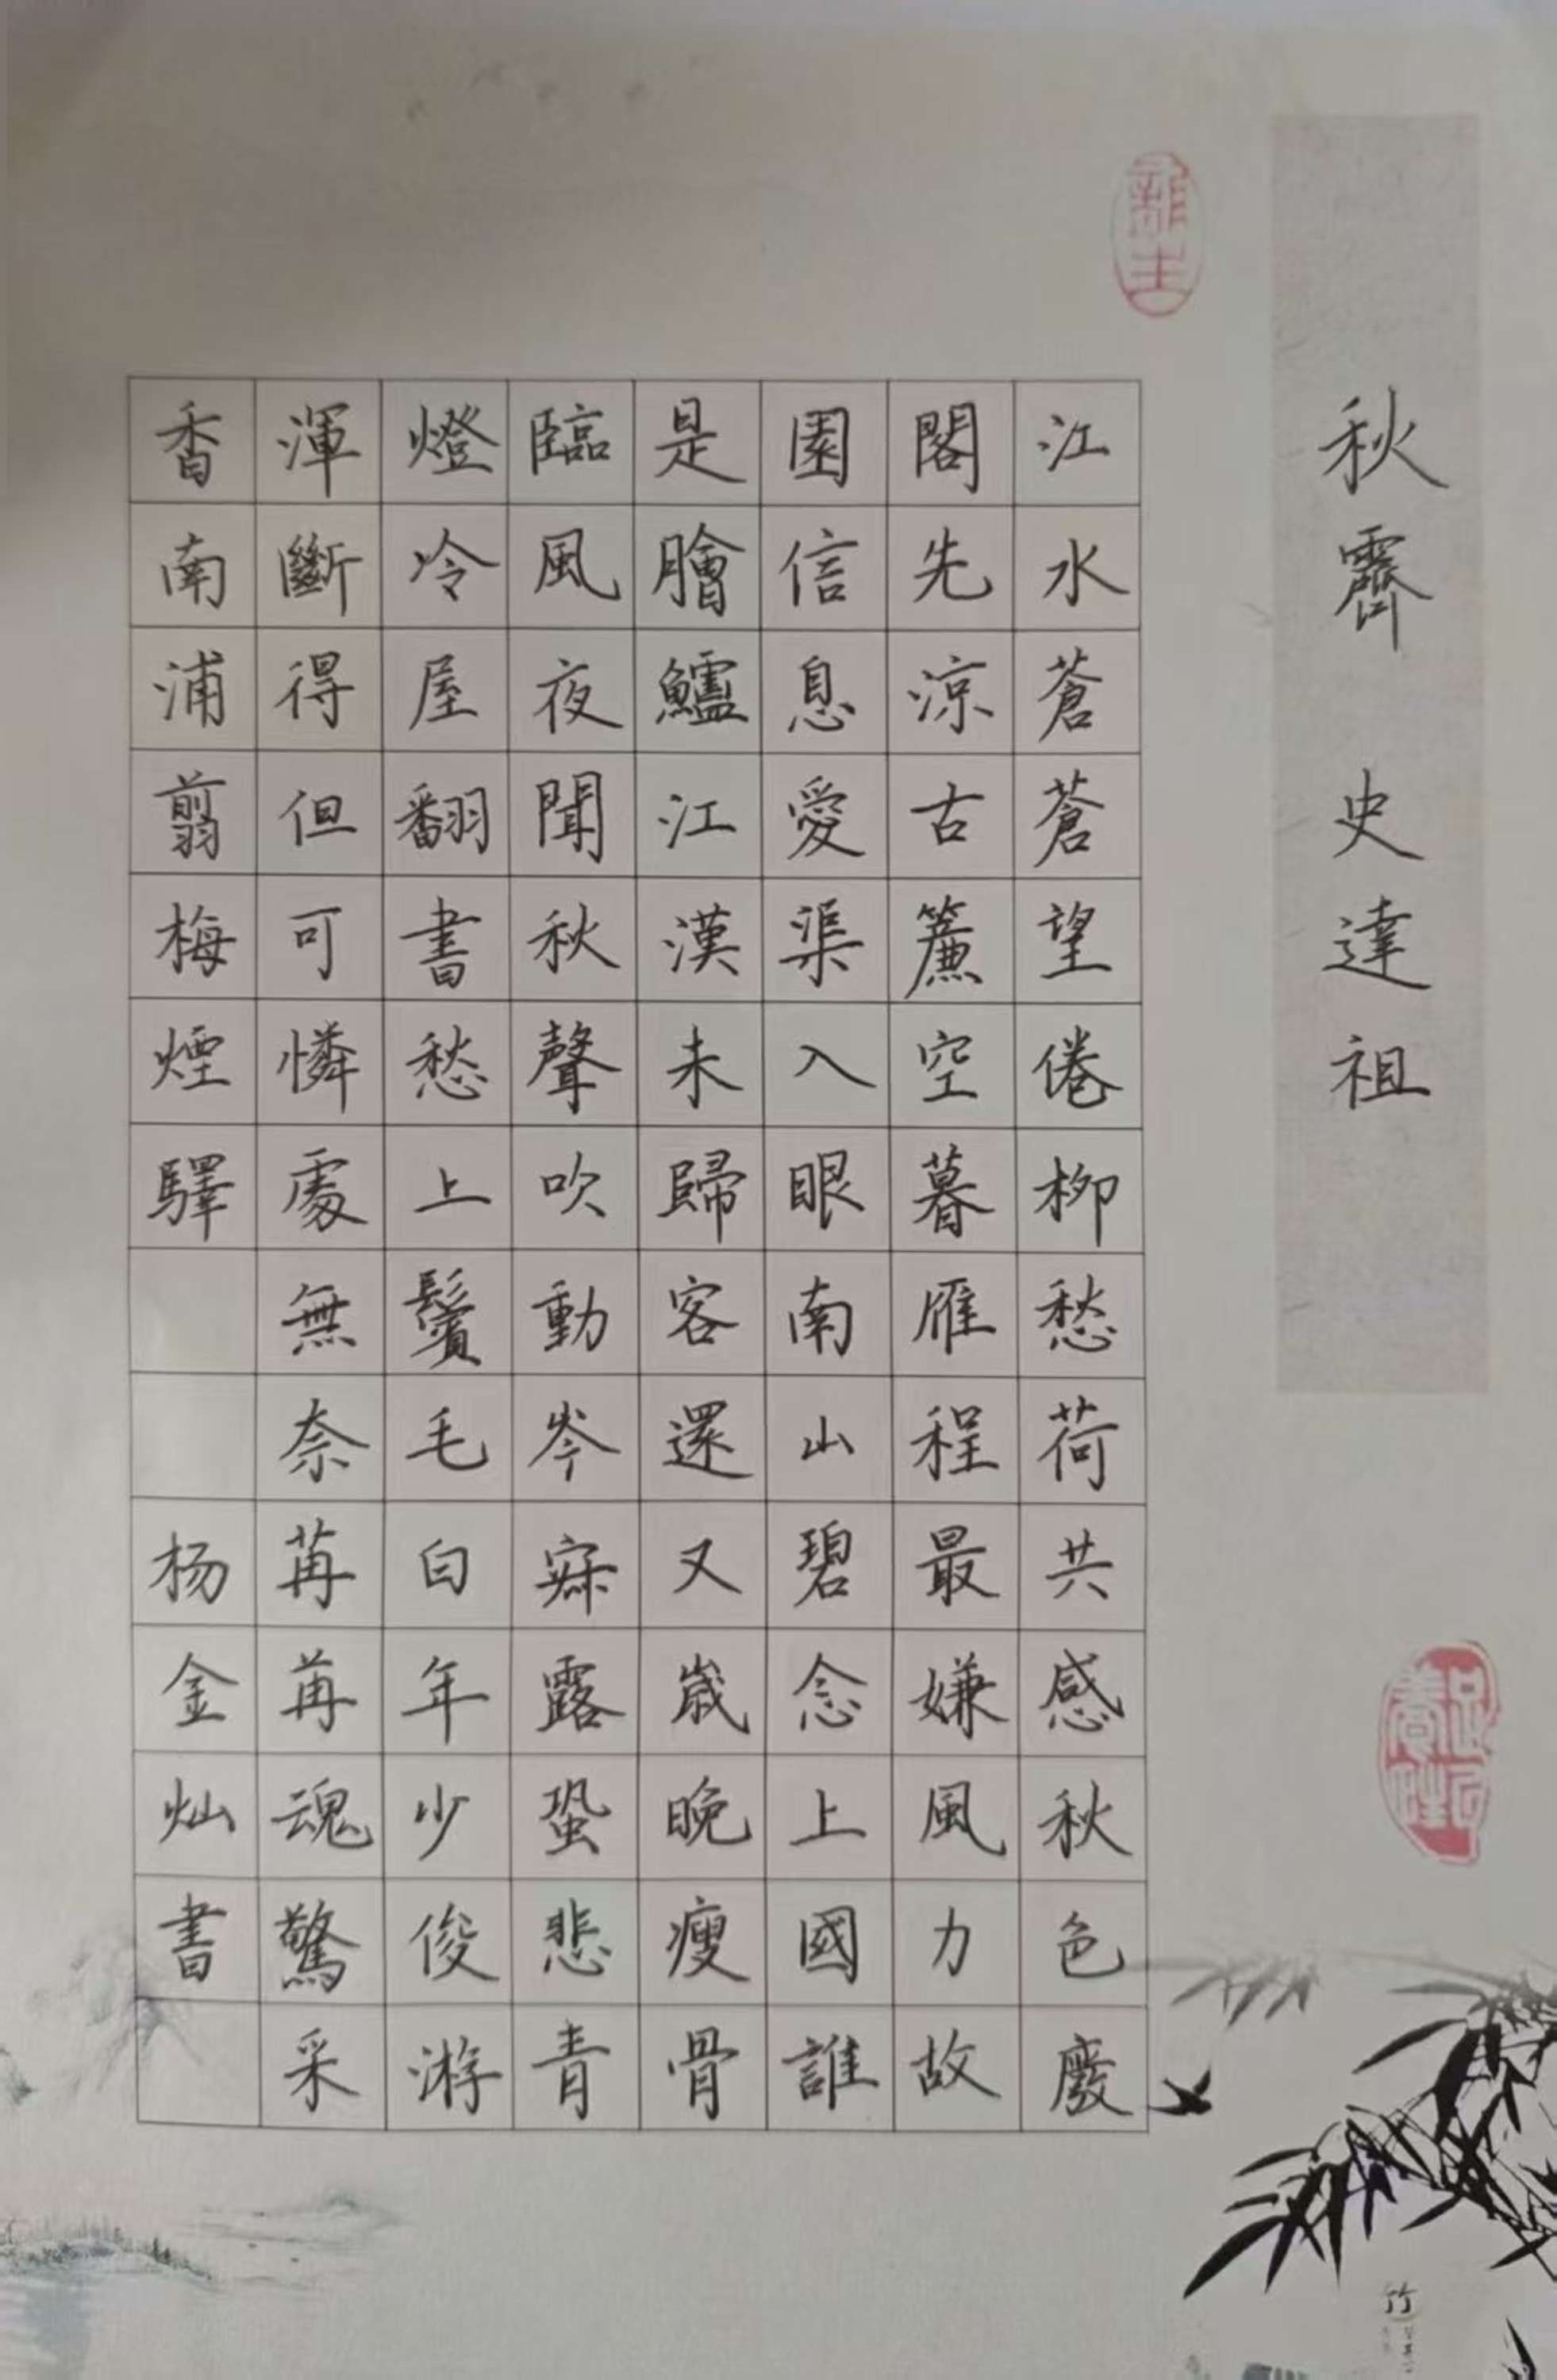 秋霽 史達祖
江水蒼蒼望倦柳愁荷共感秋色廢
閣先涼古簾空暮雁程最嫌風力故
園信息愛渠入眼南山碧念上國誰
是膾鱸江漢未歸客還又歲晚瘦骨
臨風夜聞秋聲吹動岑寂露蛩悲青
燈冷屋翻書愁上鬢毛白年少俊游
渾斷得但可憐處無奈苒苒魂驚采
香南浦翦梅煙驛 杨金灿書
竹